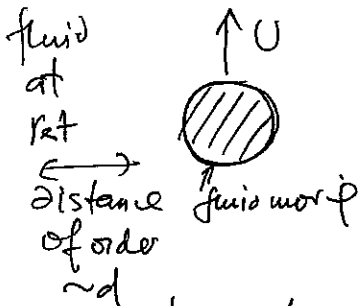 fluid
at
rest
U
distance
of order
~d
fluid moves